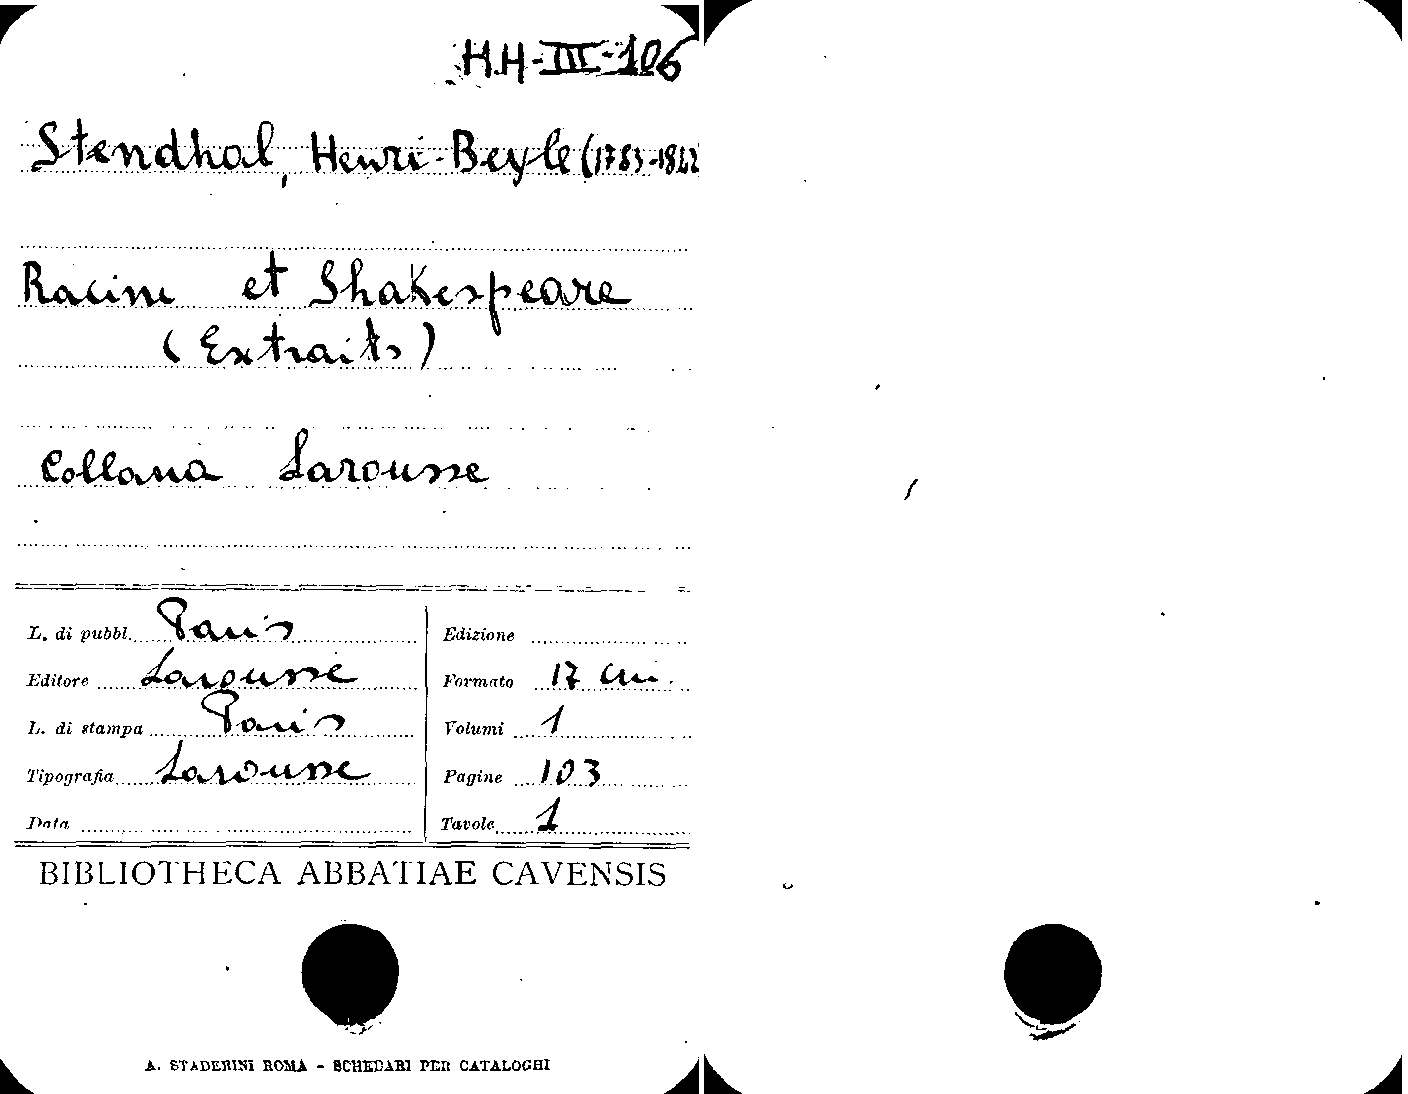 H.H-III-106
Stendhal, Henri-Beyle (1783-1842
Racine et Shakespeare
(Extraits)
Collana Larousse
L. di pubbl. Paris
Editore Larousse
L. di stampa Paris
Tipografia Larousse
Data
Edizione
Formato 17 cm.
Volumi 1
Pagine 103
Tavole 1
BIBLIOTHECA ABBATIAE CAVENSIS
A. STADERINI ROMA - SCHEDARI PER CATALOGHI